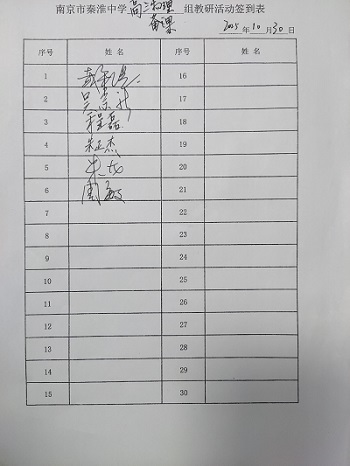 南京市秦淮中学高三物理备课组教研活动签到表
年10月30日
序号 姓名 序号 姓名
1 16
2 17
3 程磊 18
4 朱正杰 19
5 20
6 周 21
7 22
8 23
9 24
10 25
11 26
12 27
13 28
14 29
15 30